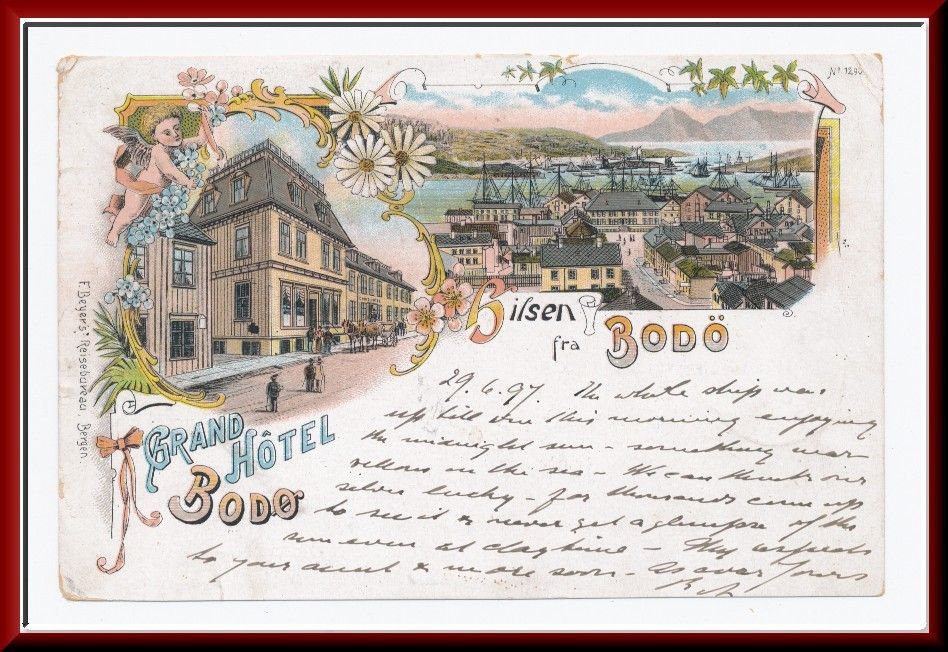 Nº 1290
Hilsen
fra BODÖ
GRAND
HÔTEL
BODØ
F. Beyers Reisebureau Bergen.
29.6.97. The whole ship was
up till one this morning enjoying
the midnight sun – something mar
vellous on the sea – We can thank our
selves lucky – for thousands come up
to see it & never get a glimpse of the
sun even at daytime – My respects
to your aunt & more soon – As ever Yours